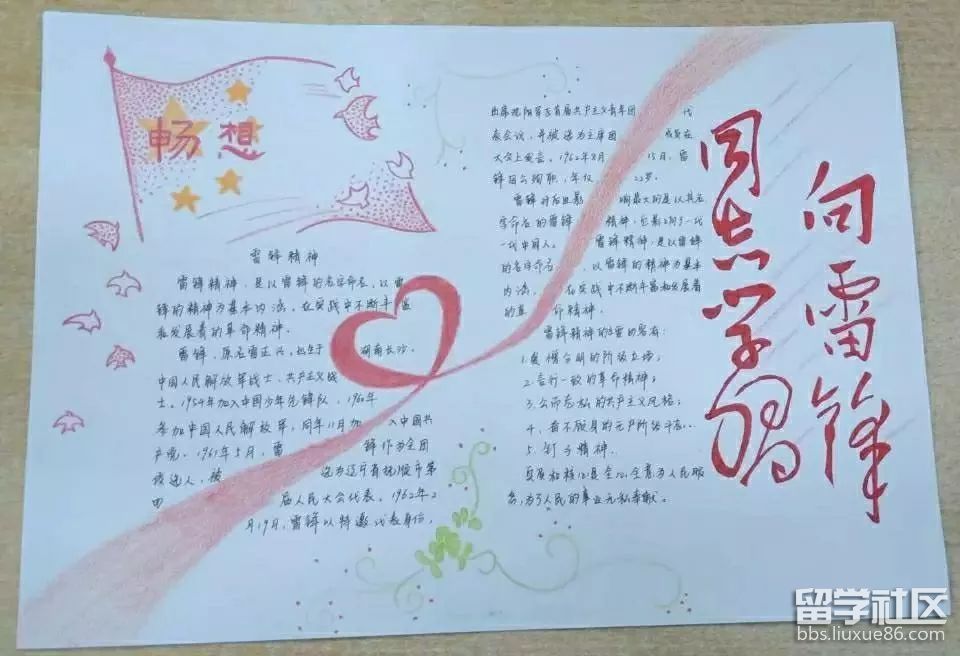 畅想
向雷锋
同志学习
雷锋精神
雷锋精神，是以雷锋的名字命名，以雷
锋的精神为基本内涵，在实践中不断丰富
和发展着的革命精神。
雷锋，原名雷正兴，出生于湖南长沙，
中国人民解放军战士、共产主义战
士。1954年加入中国少年先锋队，1960年
参加中国人民解放军，同年11月加入中国共
产党。1961年5月，雷锋作为全团
候选人，被选为辽宁省抚顺市第
四届人民大会代表。1962年2
月19日，雷锋以特邀代表身份，
出席沈阳军区首届共产主义青年团代
表会议，并被选为主席团成员在
大会上发言。1962年8月15日，雷
锋因公殉职，年仅22岁。
雷锋对后世影响最大的是以其名
字命名的雷锋精神，它影响了一代
一代中国人。雷锋精神，是以雷锋
的名字命名，以雷锋的精神为基本
内涵，在实践中不断丰富和发展着
的革命精神。
雷锋精神的主要内容有：
1.爱憎分明的阶级立场；
2.言行一致的革命精神；
3.公而忘私的共产主义风格；
4.奋不顾身的无产阶级斗志…
5.钉子精神。
其质和核心是全心全意为人民服
务，为了人民的事业无私奉献。
留学社区
bbs.liuxue86.com